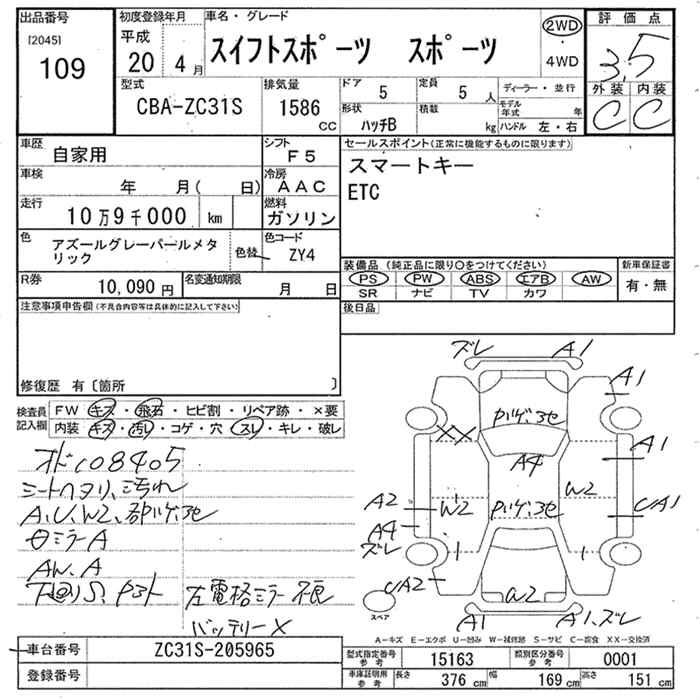 出品番号
[2045]
109
初度登録年月
平成
20年 4月
車名・グレード
スイフトスポーツ スポーツ
2WD
4WD
評価点
3.5
外装 内装
C C
型式
CBA-ZC31S
排気量
1586 CC
ドア 5
定員 5 人
ディーラー・並行
形状 ハッチB
積載 kg
モデル年式 年
ハンドル 左・右
車歴 自家用
シフト F5
車検 年 月( 日)
冷房 AAC
走行 10万9千000 km
燃料 ガソリン
色 アズールグレーパールメタリック
色替
色コード ZY4
R券 10,090円
名変通知期限 月 日
セールスポイント(正常に機能するものに限ります)
スマートキー
ETC
装備品(純正品に限り○をつけてください)
PS PW ABS エアB AW
SR ナビ TV カワ
新車保証書
有・無
後日品
注意事項申告欄(不具合内容等は具体的に記入して下さい)
修復歴 有〔箇所 〕
検査員記入欄
FW キズ・飛石・ヒビ割・リペア跡・×要
内装 キズ・汚れ・コゲ・穴・スレ・キレ・破レ
オド108405
シートヘタリ、汚れ
A、U、W2、
ミラーA
AW、A
下回りS、
左電格ミラー不良
バッテリー×
ズレ A1
A1
XX
A4
A1
A2
W2
W2
UA1
A4
ズレ
UA2
スペア
A1
A1、ズレ
A-キズ E-エクボ U-凹み W-補修跡 S-サビ C-腐食 XX-交換済
車台番号 ZC31S-205965
登録番号
型式指定番号 参考 15163
類別区分番号 参考 0001
車庫証明用 参考 長さ 376 cm 幅 169 cm 高さ 151 cm